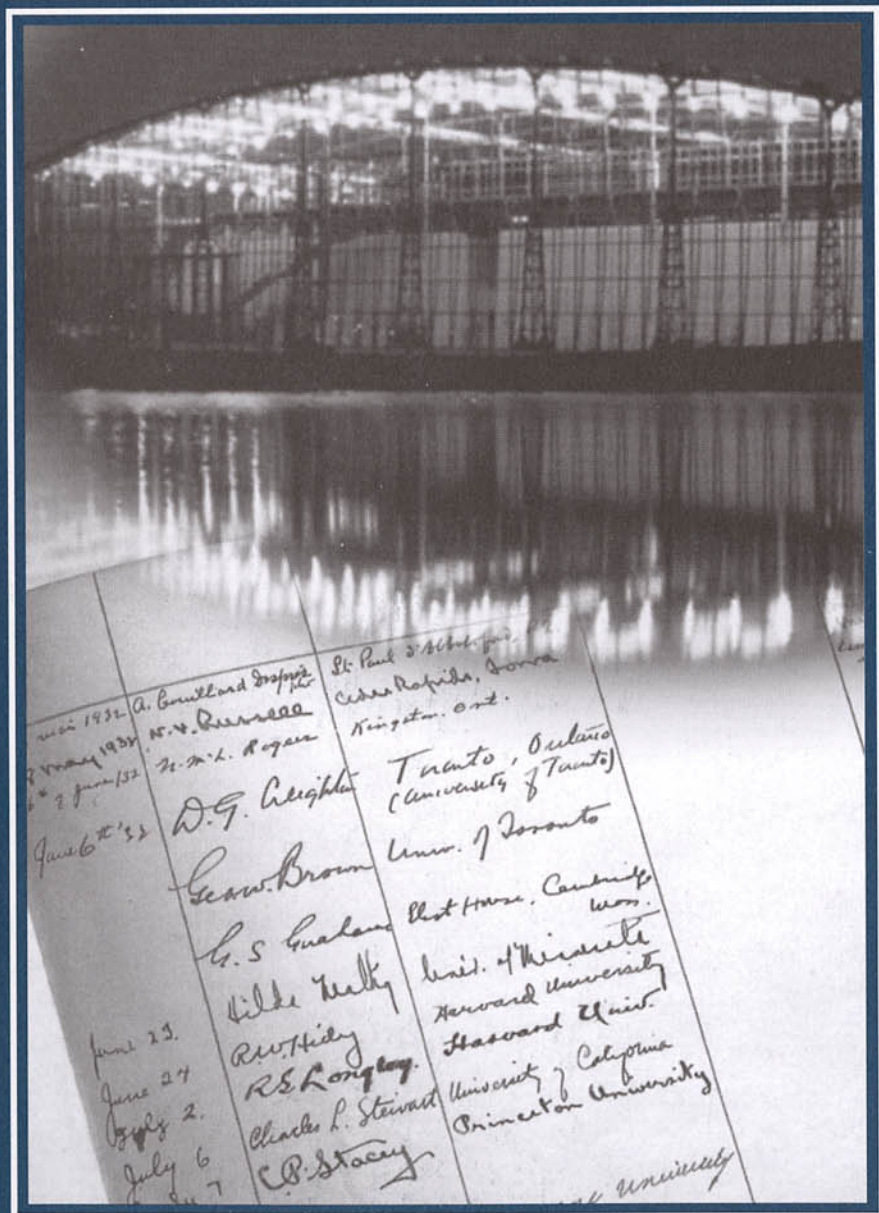 mai 1932 A. Couillard Després St. Paul d'Abbotsford,
May 1932 N.V. Russell Cedar Rapids, Iowa
2 June/32 N. McL. Rogers Kingston. Ont.
June 6th '32 D.G. Creighton Toronto, Ontario
(University of Toronto)
Geo. W. Brown Univ. of Toronto
G.S Graham Eliot House, Cambridge
Mass.
June 23. Hilda Neatby Univ. of Minnesota
June 24 R.W. Hidy Harvard University
July 2. R.S Longley. Harvard Univ.
July 6 Charles L. Stewart University of California
7 C.P. Stacey Princeton University
University